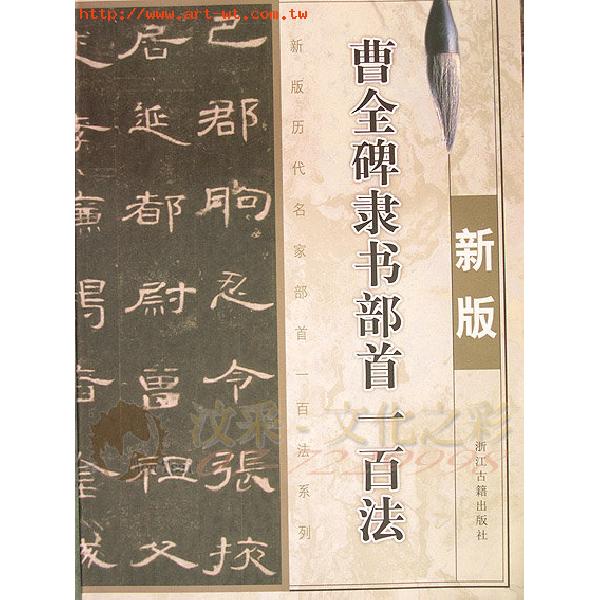 http://www.art-wt.com.tw
新版
曹全碑隶书部首一百法
浙江古籍出版社
新版历代名家部首一百法系列
巴郡朐忍令張掖
居延都尉曾祖父
汶采·文化之彩